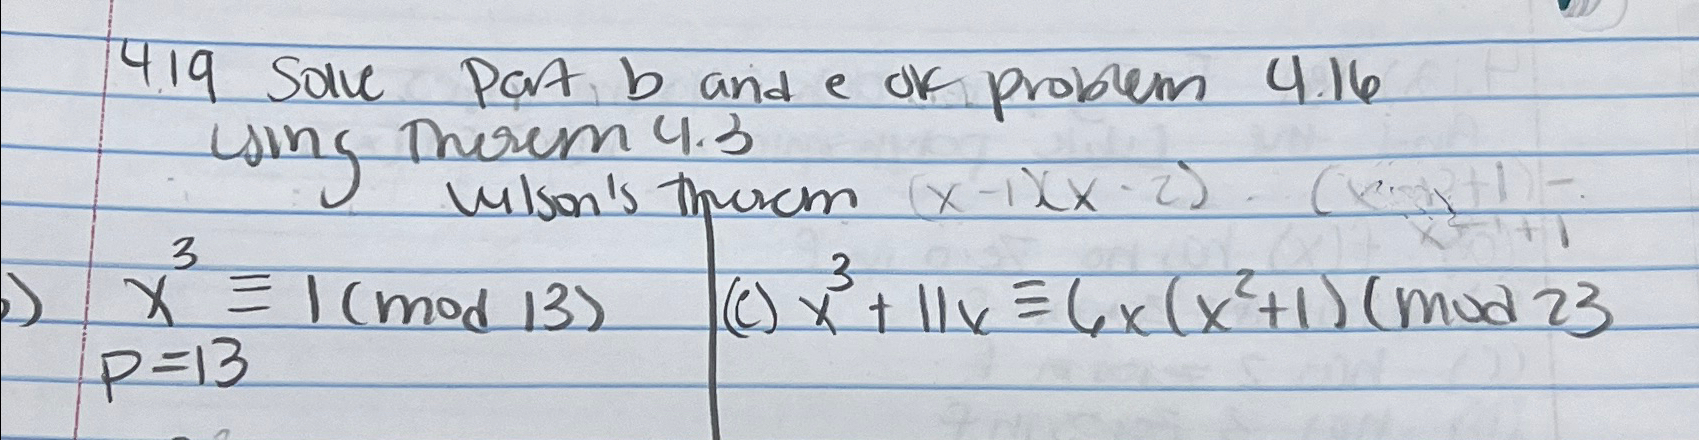 4.19 Solve Part b and e of problem 4.16
using Theorem 4.3
Wilson's theorem (x-1)(x-2)
b) x³ ≡ 1 (mod 13)
p=13
(e) x³ + 11x ≡ 6x(x²+1) (mod 23